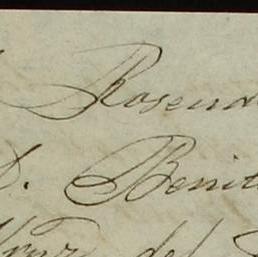 Rosend
D. Benit
del